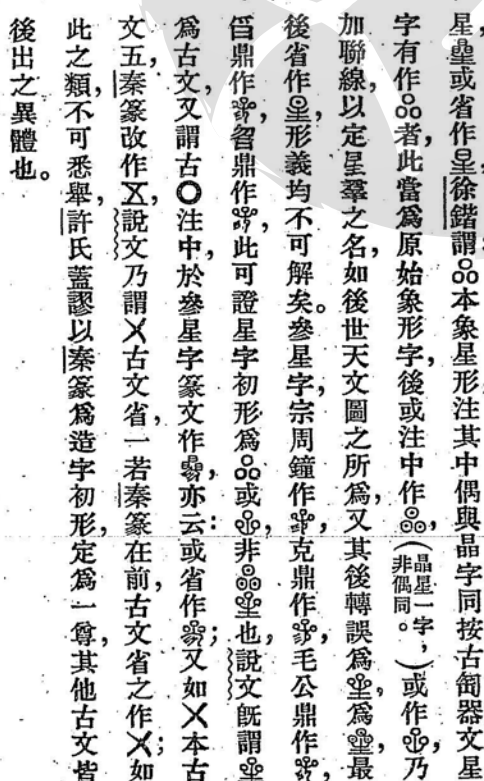 星，曐或省作皨，徐鍇謂○○○本象星形，注其中偶與晶字同，按古匋器文星
字有作○○○者，此當爲原始象形字，後或注中作晶，（晶星一字，非偶同。）或作，乃
加聯線，以定星羣之名，如後世天文圖之所爲，又其後轉誤爲，爲，最
後省作，形義均不可解矣。參星字，宗周鐘作，克鼎作，毛公鼎作，
舀鼎作，曶鼎作，此可證星字初形爲或，非也，說文旣謂
爲古文，又謂古○注中，於參星字篆文作，亦云：或省作；又如㐅本古
文五，秦篆改作，說文乃謂㐅古文省，一若秦篆在前，古文省之作㐅；如
此之類，不可悉舉，許氏蓋謬以秦篆爲造字初形，定爲一尊，其他古文皆
後出之異體也。